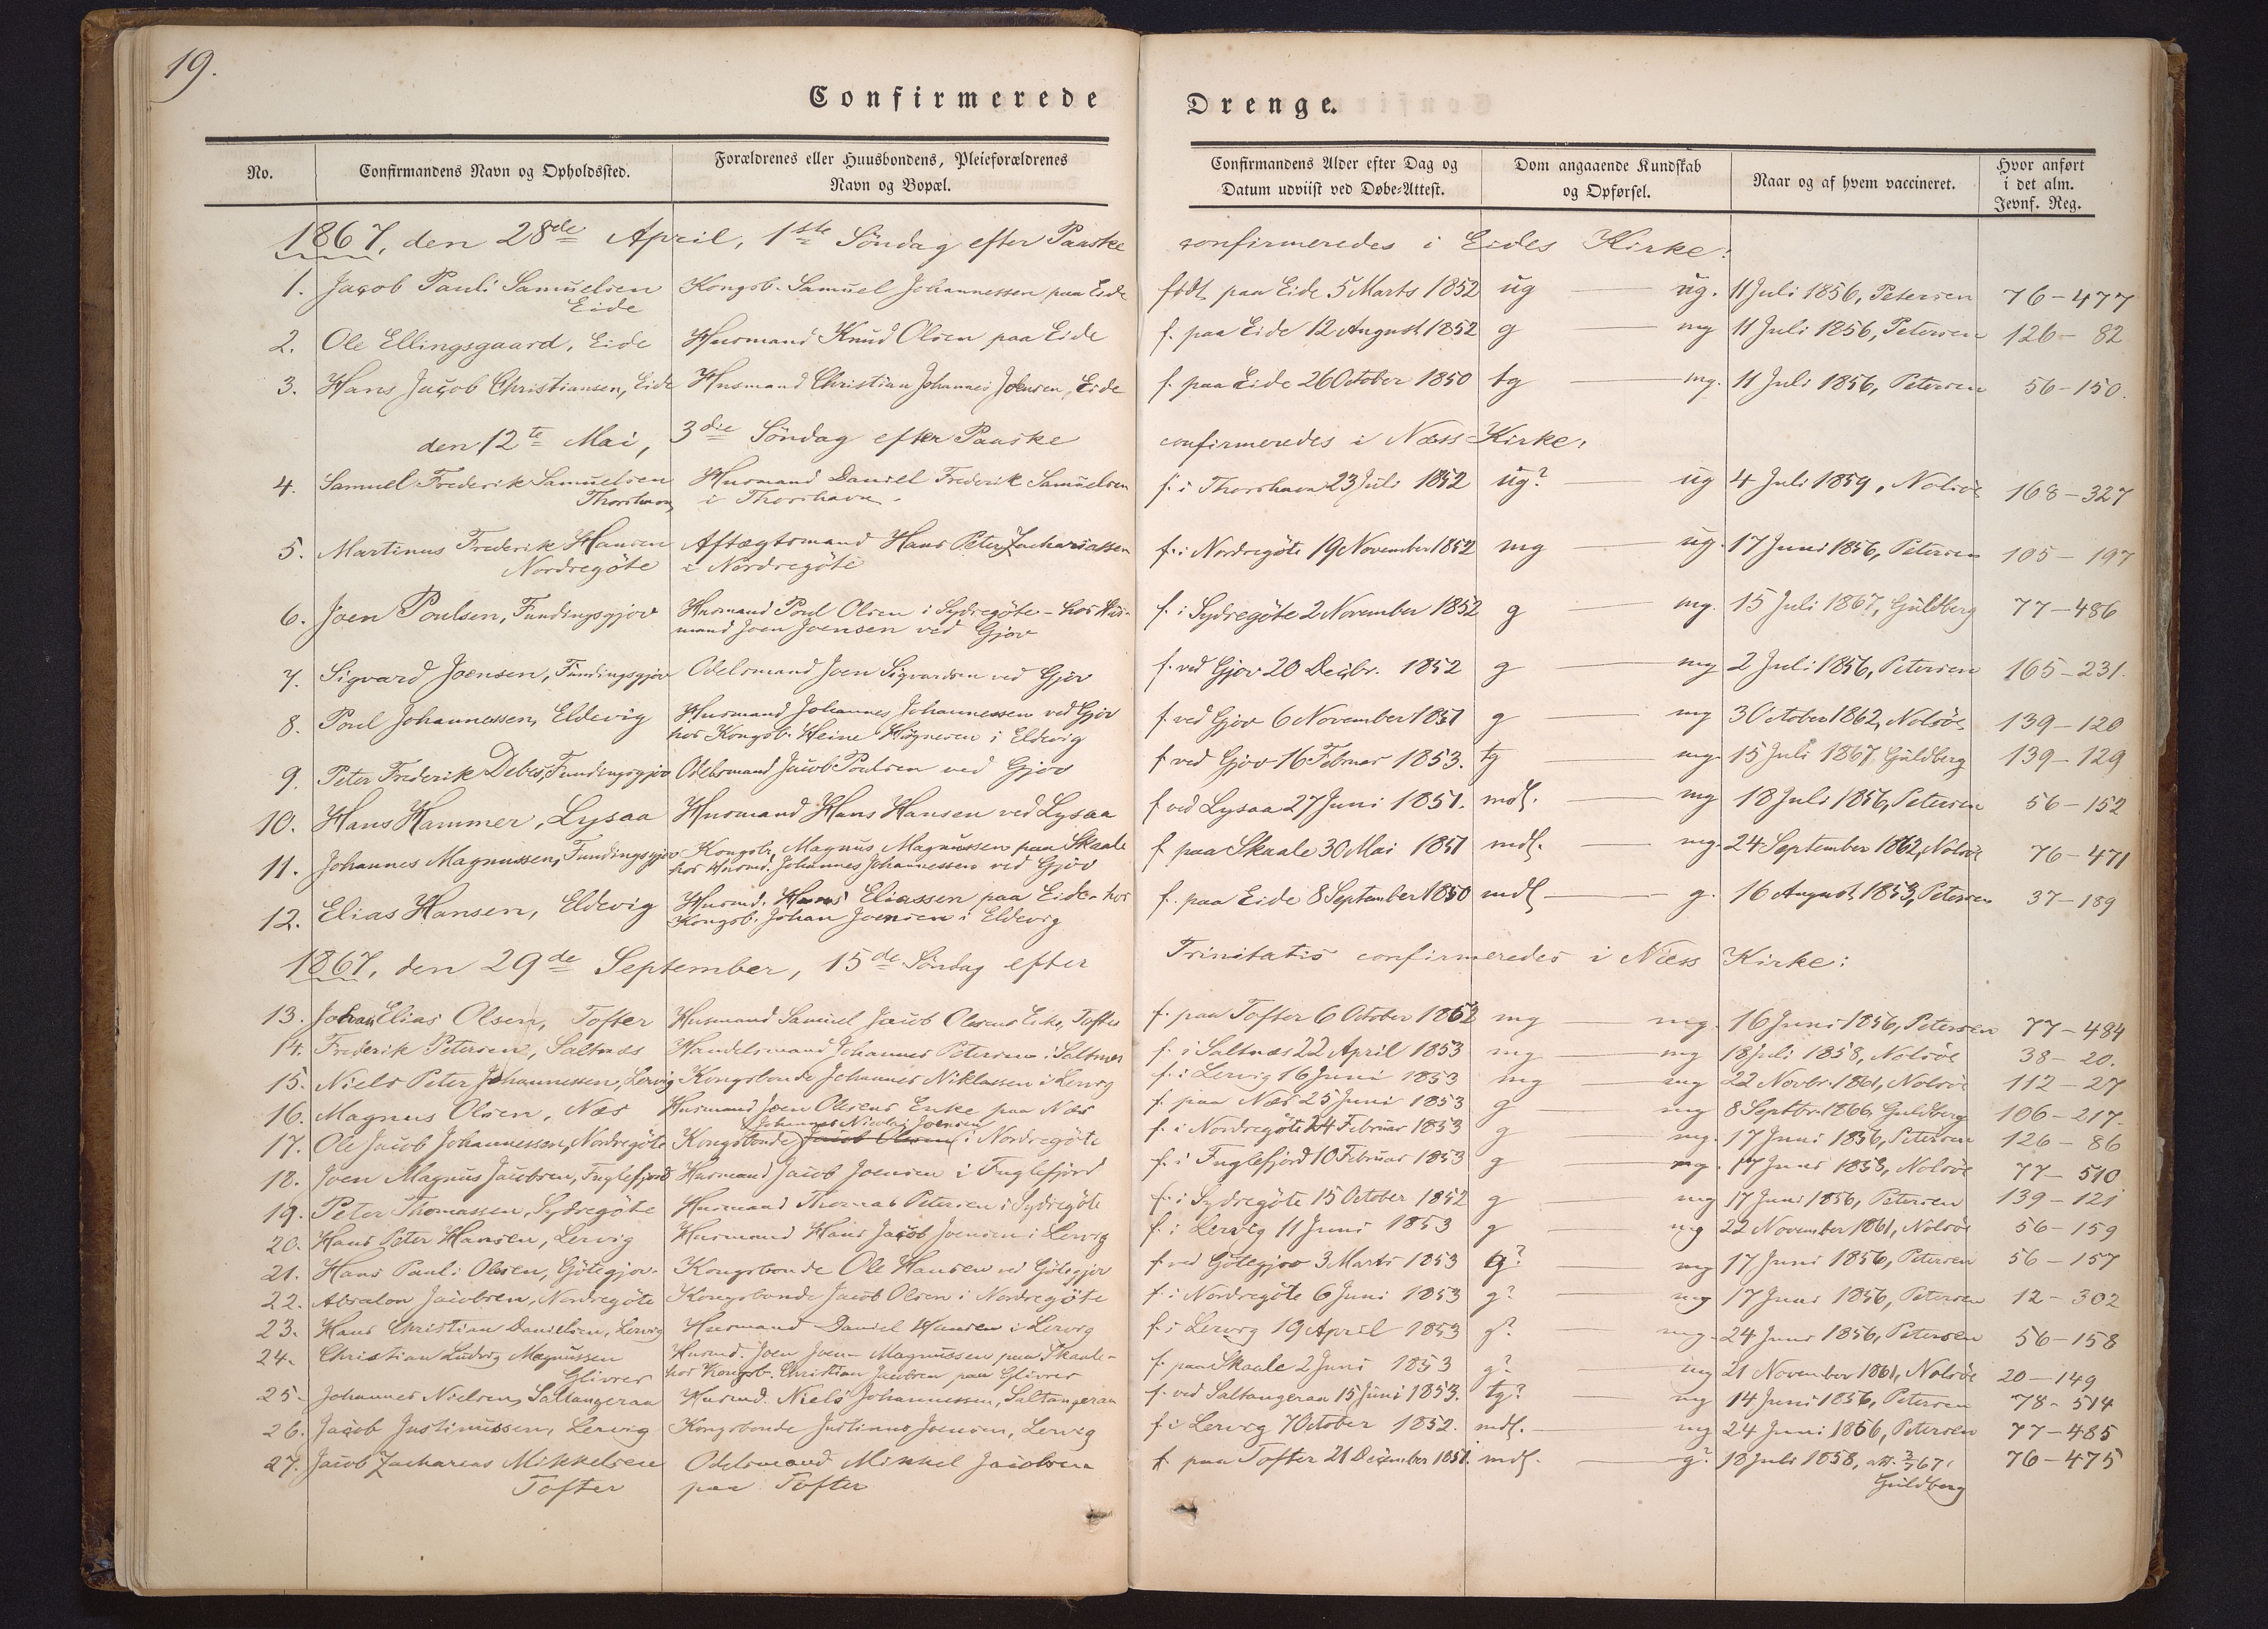 19.
Confirmerede Drenge.
No. Confirmandens Navn og Opholdssted. Forældrenes eller Huusbondens, Pleieforældrenes Navn og Bopæl. Confirmandens Alder efter Dag og Datum udviist ved Døbe-Attest. Dom angaaende Kundskab og Opførsel. Naar og af hvem vaccineret. Hvor anført i det alm. Jevnf. Reg.
1867, den 28de April, 1ste Söndag efter Paaske confirmeredes i Eides Kirke:
1. Jacob Pauli Samuelsen Kongsb. Samuel Johannessen paa Eide födt paa Eide 5 Marts 1852 ug — ug. 11 Juli 1856, Petersen 76-477
Eide
2. Ole Ellingsgaard, Eide Husmand Knud Olsen paa Eide f. paa Eide 12 August 1852 g — mg 11 Juli 1856, Petersen 126-82
3. Hans Jacob Christiansen, Eide Husmand Christian Johannes Joensen, Eide f. paa Eide 26 October 1850 tg — mg. 11 Juli 1856, Petersen 56-150.
den 12te Mai, 3die Söndag efter Paaske confirmeredes i Næss Kirke:
4. Samuel Frederik Samuelsen Husmand Daniel Frederik Samuelsen f. i Thorshavn 23 Juli 1852 ug? — ug 4 Juli 1859, Nolsöe 168-327
Thorshavn i Thorshavn.
5. Martinus Frederik Hansen Aftægtsmand Hans Peter Zachariassen f. i Nordregöte 19 November 1852 mg — ug. 17 Juni 1856, Petersen 105-197
Nordregöte i Nordregöte
6. Joen Poulsen, Fundingsgjov Husmand Poul Olsen i Sydregöte - hos Hus- f. i Sydregöte 2 November 1852 g — mg. 15 Juli 1867, Guldberg 77-486
mand Joen Joensen ved Gjov
7. Sigvard Joensen, Fundingsgjov Odelsmand Joen Sigvardsen ved Gjov f. ved Gjov 20 Decbr. 1852 g — mg 2 Juli 1856, Petersen 165-231.
8. Poul Johannessen, Eldevig Husmand Johannes Johannessen ved Gjov f ved Gjov 6 November 1851 g — mg 3 October 1862, Nolsöe 139-120
hos Kongsb. Heine Högnesen i Eldevig
9. Peter Frederik Debes, Fundingsgjov Odelsmand Jacob Poulsen ved Gjov f ved Gjov 16 Februar 1853. tg — mg. 15 Juli 1867, Guldberg 139-129
10. Hans Hammer, Lysaa Husmand Hans Hansen ved Lysaa f ved Lysaa 27 Juni 1851. mdl. — mg 18 Juli 1856, Petersen 56-152
11. Johannes Magnussen, Fundingsgjov Kongsb. Magnus Magnussen paa Skaale f paa Skaale 30 Mai 1851 mdl. — mg. 24 September 1862, Nolsöe 76-471
hos Husmd. Johannes Johannessen ved Gjov
12. Elias Hansen, Eldevig Husmd. Hans Eliassen paa Eide - hos f. paa Eide 8 September 1850 mdl — g. 16 August 1853, Petersen 37-189
Kongsb. Johan Joensen i Eldevig
1867, den 29de September, 15de Söndag efter Trinitatis confirmeredes i Næss Kirke:
13. Johan Elias Olsen, Tofter Husmand Samuel Jacob Olsens Enke, Tofter f. paa Tofter 6 October 1852 mg — mg. 16 Juni 1856, Petersen 77-484
14. Frederik Petersen, Saltnæs Handelsmand Johannes Petersen i Saltnæs f. i Saltnæs 22 April 1853 mg — mg 18 Juli 1858, Nolsöe 38-20.
15. Niels Peter Johannessen, Lervig Kongsbonde Johannes Niklassen i Lervig f. i Lervig 16 Juni 1853 mg — mg 22 Novbr. 1861, Nolsöe 112-27
16. Magnus Olsen, Næs Husmand Joen Olsens Enke paa Næs f. paa Næs 25 Juni 1853 g — mg 8 Septbr. 1866, Guldberg 106-217.
Johannes Nicolai Joensen
17. Ole Jacob Johannessen, Nordregöte Kongsbonde Jacob Olsen i Nordregöte f. i Nordregöte 24 Februar 1853 g — mg. 17 Juni 1856, Petersen 126-86
18. Joen Magnus Jacobsen, Fuglefjord Husmand Jacob Joensen i Fuglefjord f. i Fuglefjord 10 Februar 1853 g — mg. 17 Juni 1858, Nolsöe 77-510
19. Peter Thomassen, Sydregöte Husmand Thomas Petersen i Sydregöte f. i Sydregöte 15 October 1852 g — mg 17 Juni 1856, Petersen 139-121
20. Hans Peter Hansen, Lervig Husmand Hans Jacob Joensen i Lervig f. i Lervig 11 Juni 1853 g — mg 22 November 1861, Nolsöe 56-159
21. Hans Pauli Olsen, Götegjov. Kongsbonde Ole Hansen ved Götegjov f. ved Götegjov 3 Marts 1853 g? — mg 17 Juni 1856, Petersen 56-157
22. Absalon Jacobsen, Nordregöte Kongsbonde Jacob Olsen i Nordregöte f. i Nordregöte 6 Juni 1853 g? — mg 17 Juni 1856, Petersen 12-302
23. Hans Christian Danielsen, Lervig Husmand Daniel Hansen i Lervig f. i Lervig 19 April 1853 g? — mg. 24 Juni 1856, Petersen 56-158
24. Christian Ludvig Magnussen Husmd. Joen Magnussen paa Skaale - f. paa Skaale 2 Juni 1853 g? mg 21 November 1861, Nolsöe 20-149
Glivrer hos Kongsb. Christian Jacobsen paa Glivrer
25. Johannes Nielsen, Saltangeraa Husmd. Niels Johannessen, Saltangeraa f. ved Saltangeraa 15 Juni 1853. tg? — mg 14 Juni 1856, Petersen 78-514
26. Jacob Justinussen, Lervig Kongsbonde Justinus Joensen, Lervig f i Lervig 7 October 1852. mdl. — mg 24 Juni 1856, Petersen 77-485
27. Jacob Zacharias Mikkelsen Odelsmand Mikkel Jacobsen f. paa Tofter 21 December 1851. mdl. — g? 18 Juli 1858, att. 2/7 67, 76-475
Tofter paa Tofter Guldberg